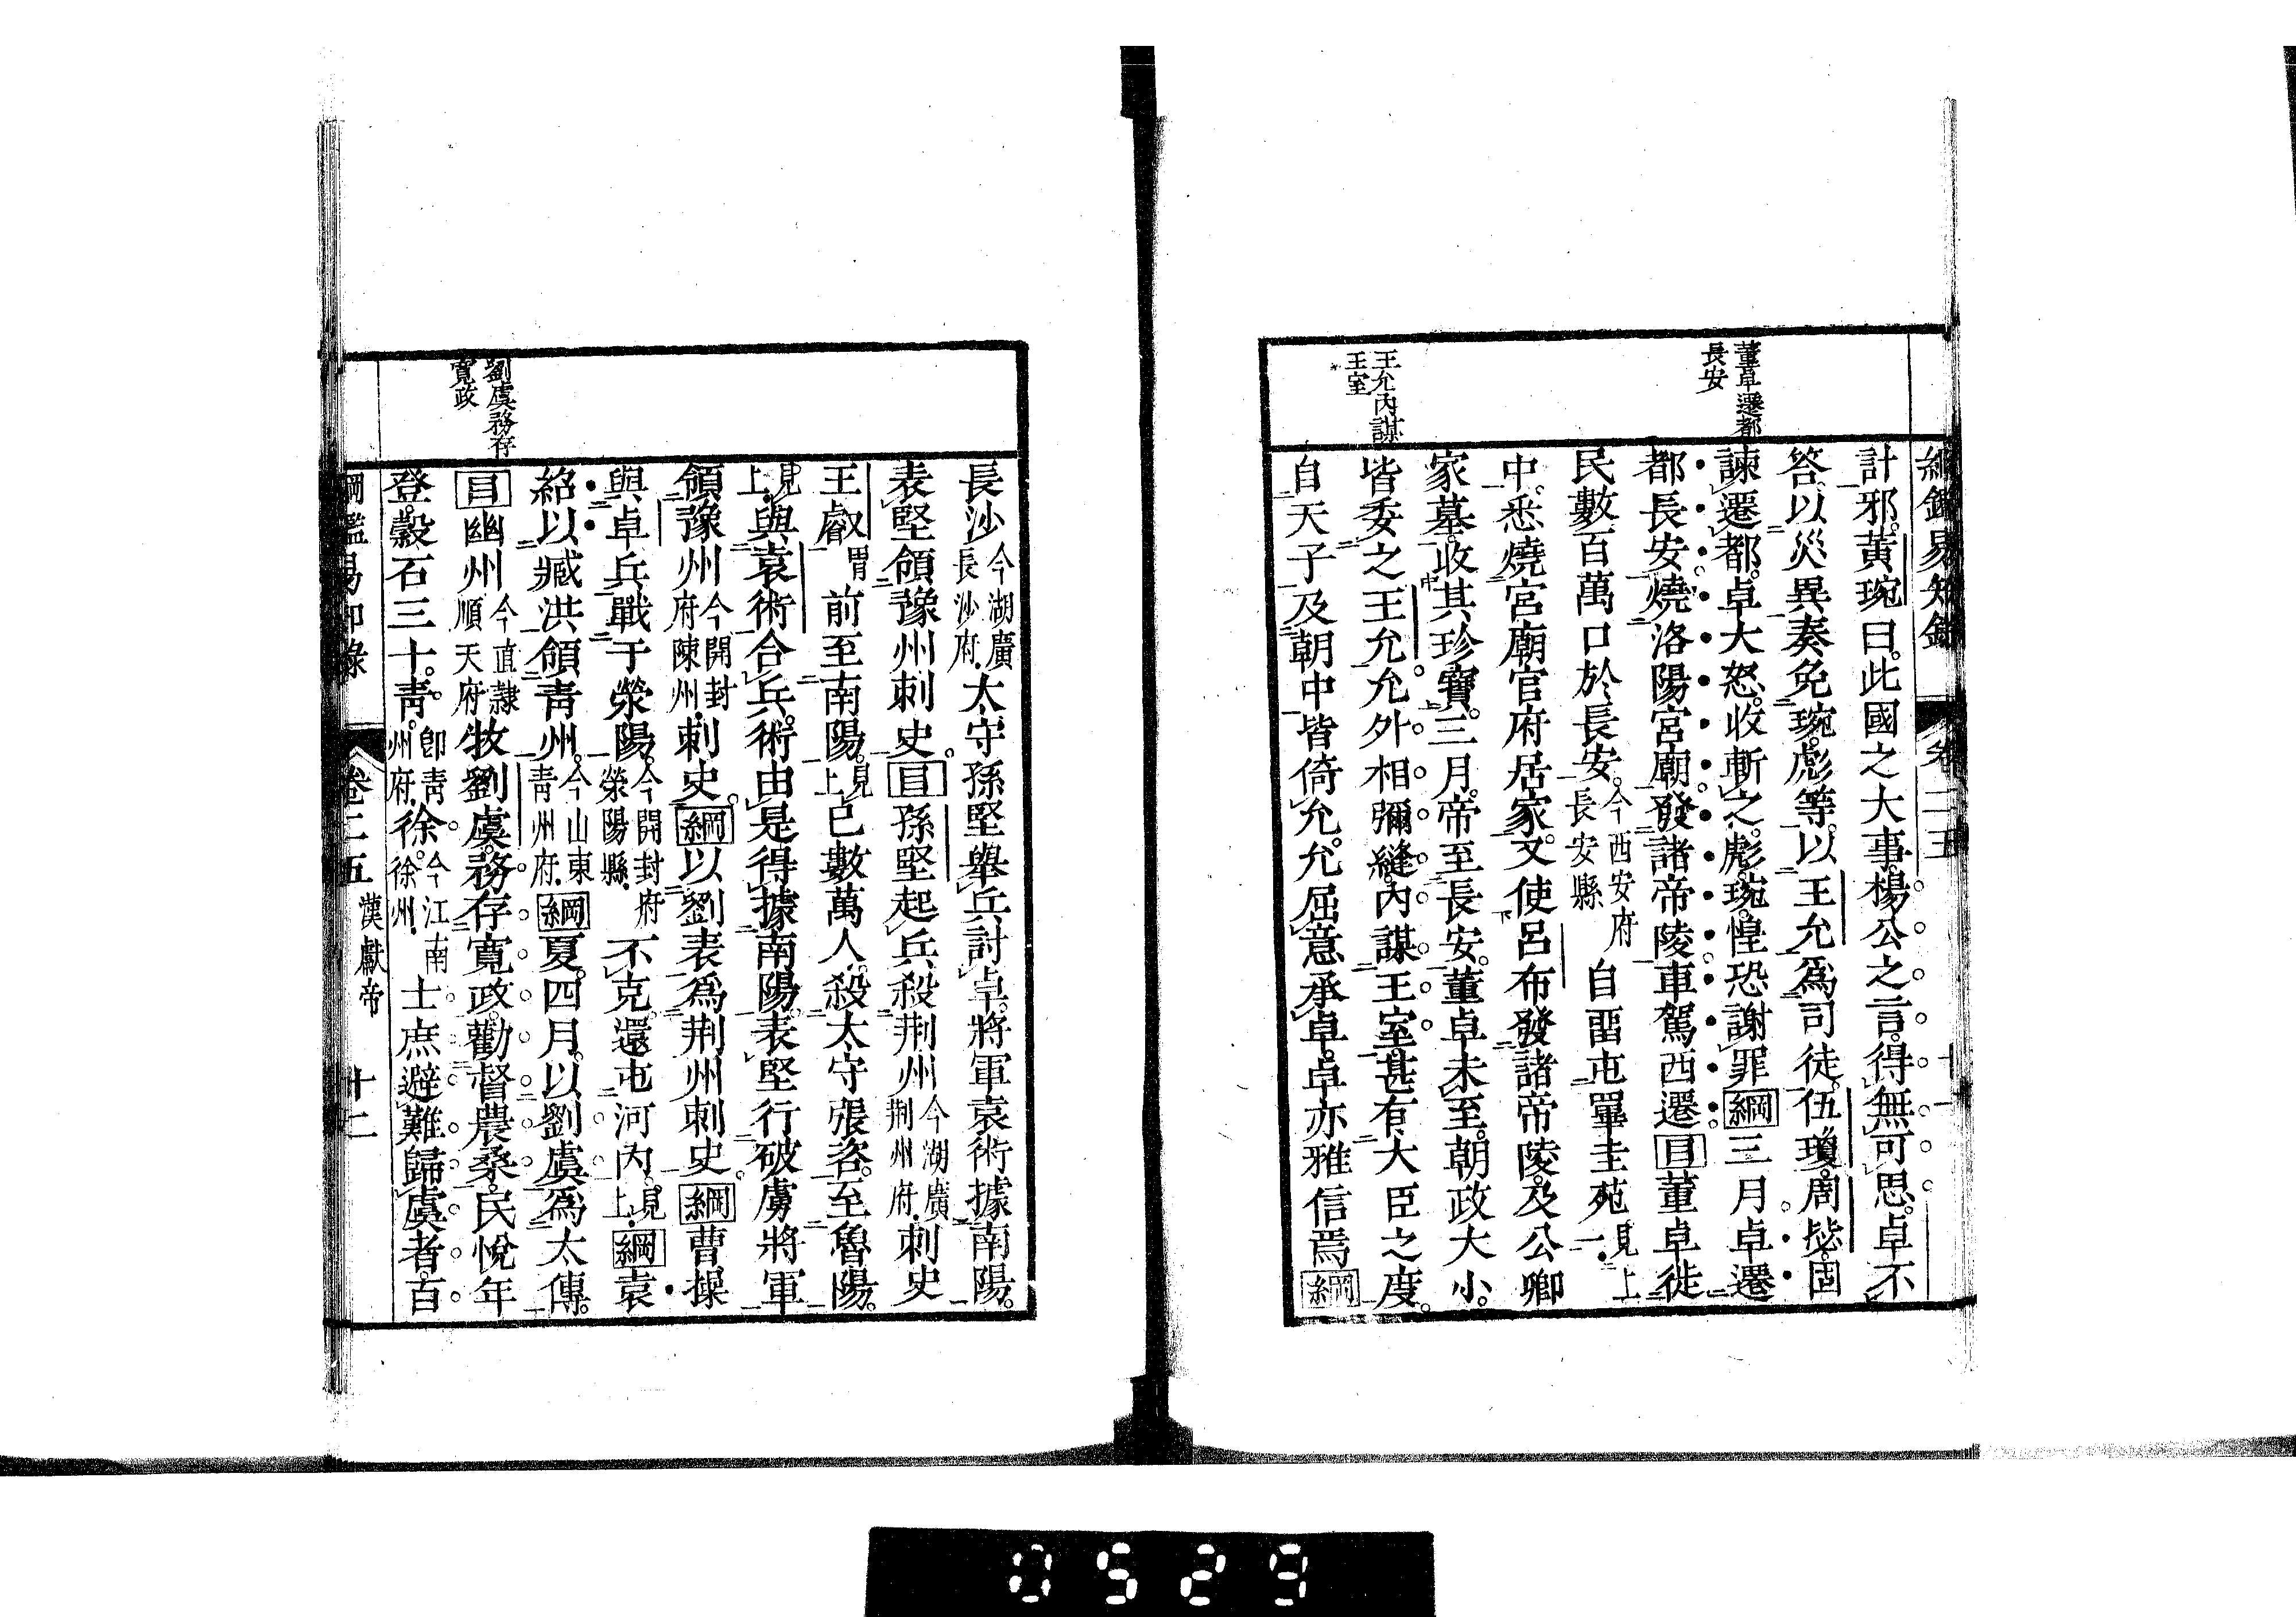 綱鑑易知錄 卷二五 十一
董卓遷都
長安
王允內謀
王室
計邪。黃琬曰。此國之大事。楊公之言。得無可思。卓不
答。以災異奏免琬彪等。以王允爲司徒。伍瓊周毖固
諫遷都。卓大怒。收斬之。彪琬惶恐謝罪綱三月卓遷
都長安燒洛陽宮廟。發諸帝陵車駕西遷。目董卓徙
民數百萬口於長安。今西安府長安縣自畱屯畢圭苑。見上
中。悉燒宮廟官府居家。又使呂布發諸帝陵。及公卿
家墓。收其珍寶。三月。帝至長安。董卓未至。朝政大小。
皆委之王允。允外相彌縫。內謀王室。甚有大臣之度。
自天子及朝中皆倚允。允屈意承卓。卓亦雅信焉綱
長沙今湖廣長沙府太守孫堅舉兵討卓。將軍袁術據南陽。
表堅領豫州刺史。目孫堅起兵殺荆州今湖廣荆州府刺史
王叡胃前至南陽。見上已數萬人。殺太守張咨。至魯陽。
見上與袁術合兵。術由是得據南陽。表堅行破虜將軍
領豫州今開封府陳州刺史。綱以劉表爲荆州刺史。綱曹操
與卓兵戰于滎陽。今開封府滎陽縣不克還屯河內。見上綱袁
紹以臧洪領靑州。今山東靑州府綱夏。四月。以劉虞爲太傅。
目幽州今直隸順天府牧劉虞。務存寬政。勸督農桑。民悅年
登。穀石三十。靑。卽靑州府徐。今江南徐州士庶避難歸虞者。百
劉虞務存
寬政
綱鑑易知錄 卷二五 漢獻帝 十二
0529